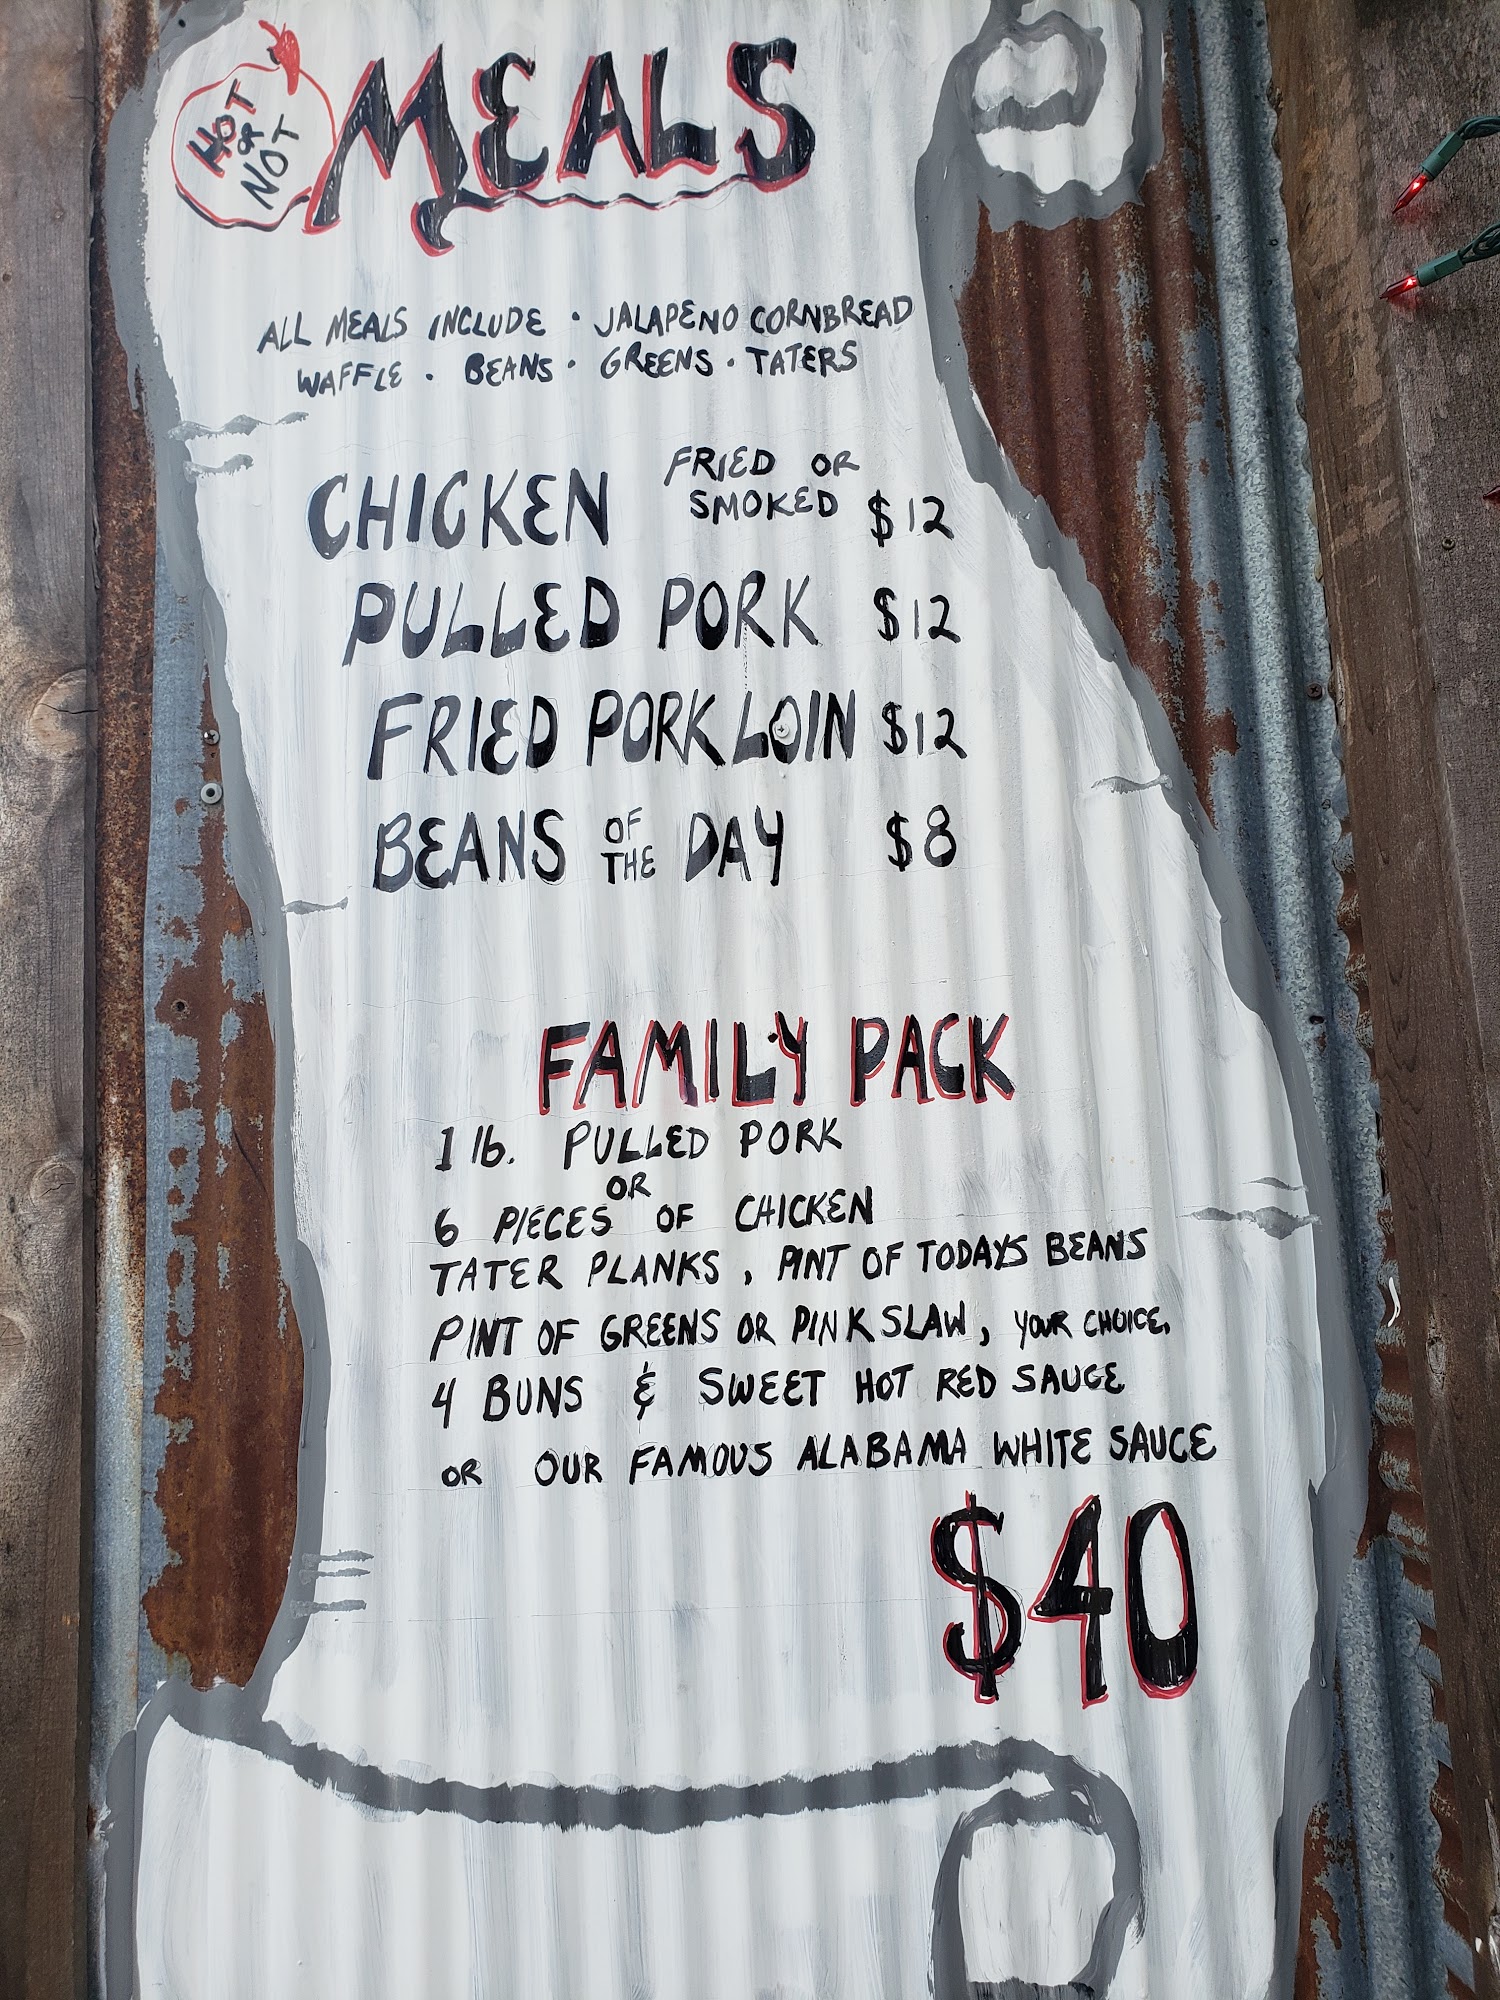 HOT
OR
NOT
MEALS
ALL MEALS INCLUDE · JALAPENO CORNBREAD
WAFFLE · BEANS · GREENS · TATERS
CHICKEN FRIED OR
SMOKED $12
PULLED PORK $12
FRIED PORK LOIN $12
BEANS OF THE DAY $8
FAMILY PACK
1 lb. PULLED PORK
OR
6 PIECES OF CHICKEN
TATER PLANKS, PINT OF TODAYS BEANS
PINT OF GREENS OR PINK SLAW, YOUR CHOICE,
4 BUNS & SWEET HOT RED SAUCE
OR OUR FAMOUS ALABAMA WHITE SAUCE
$40